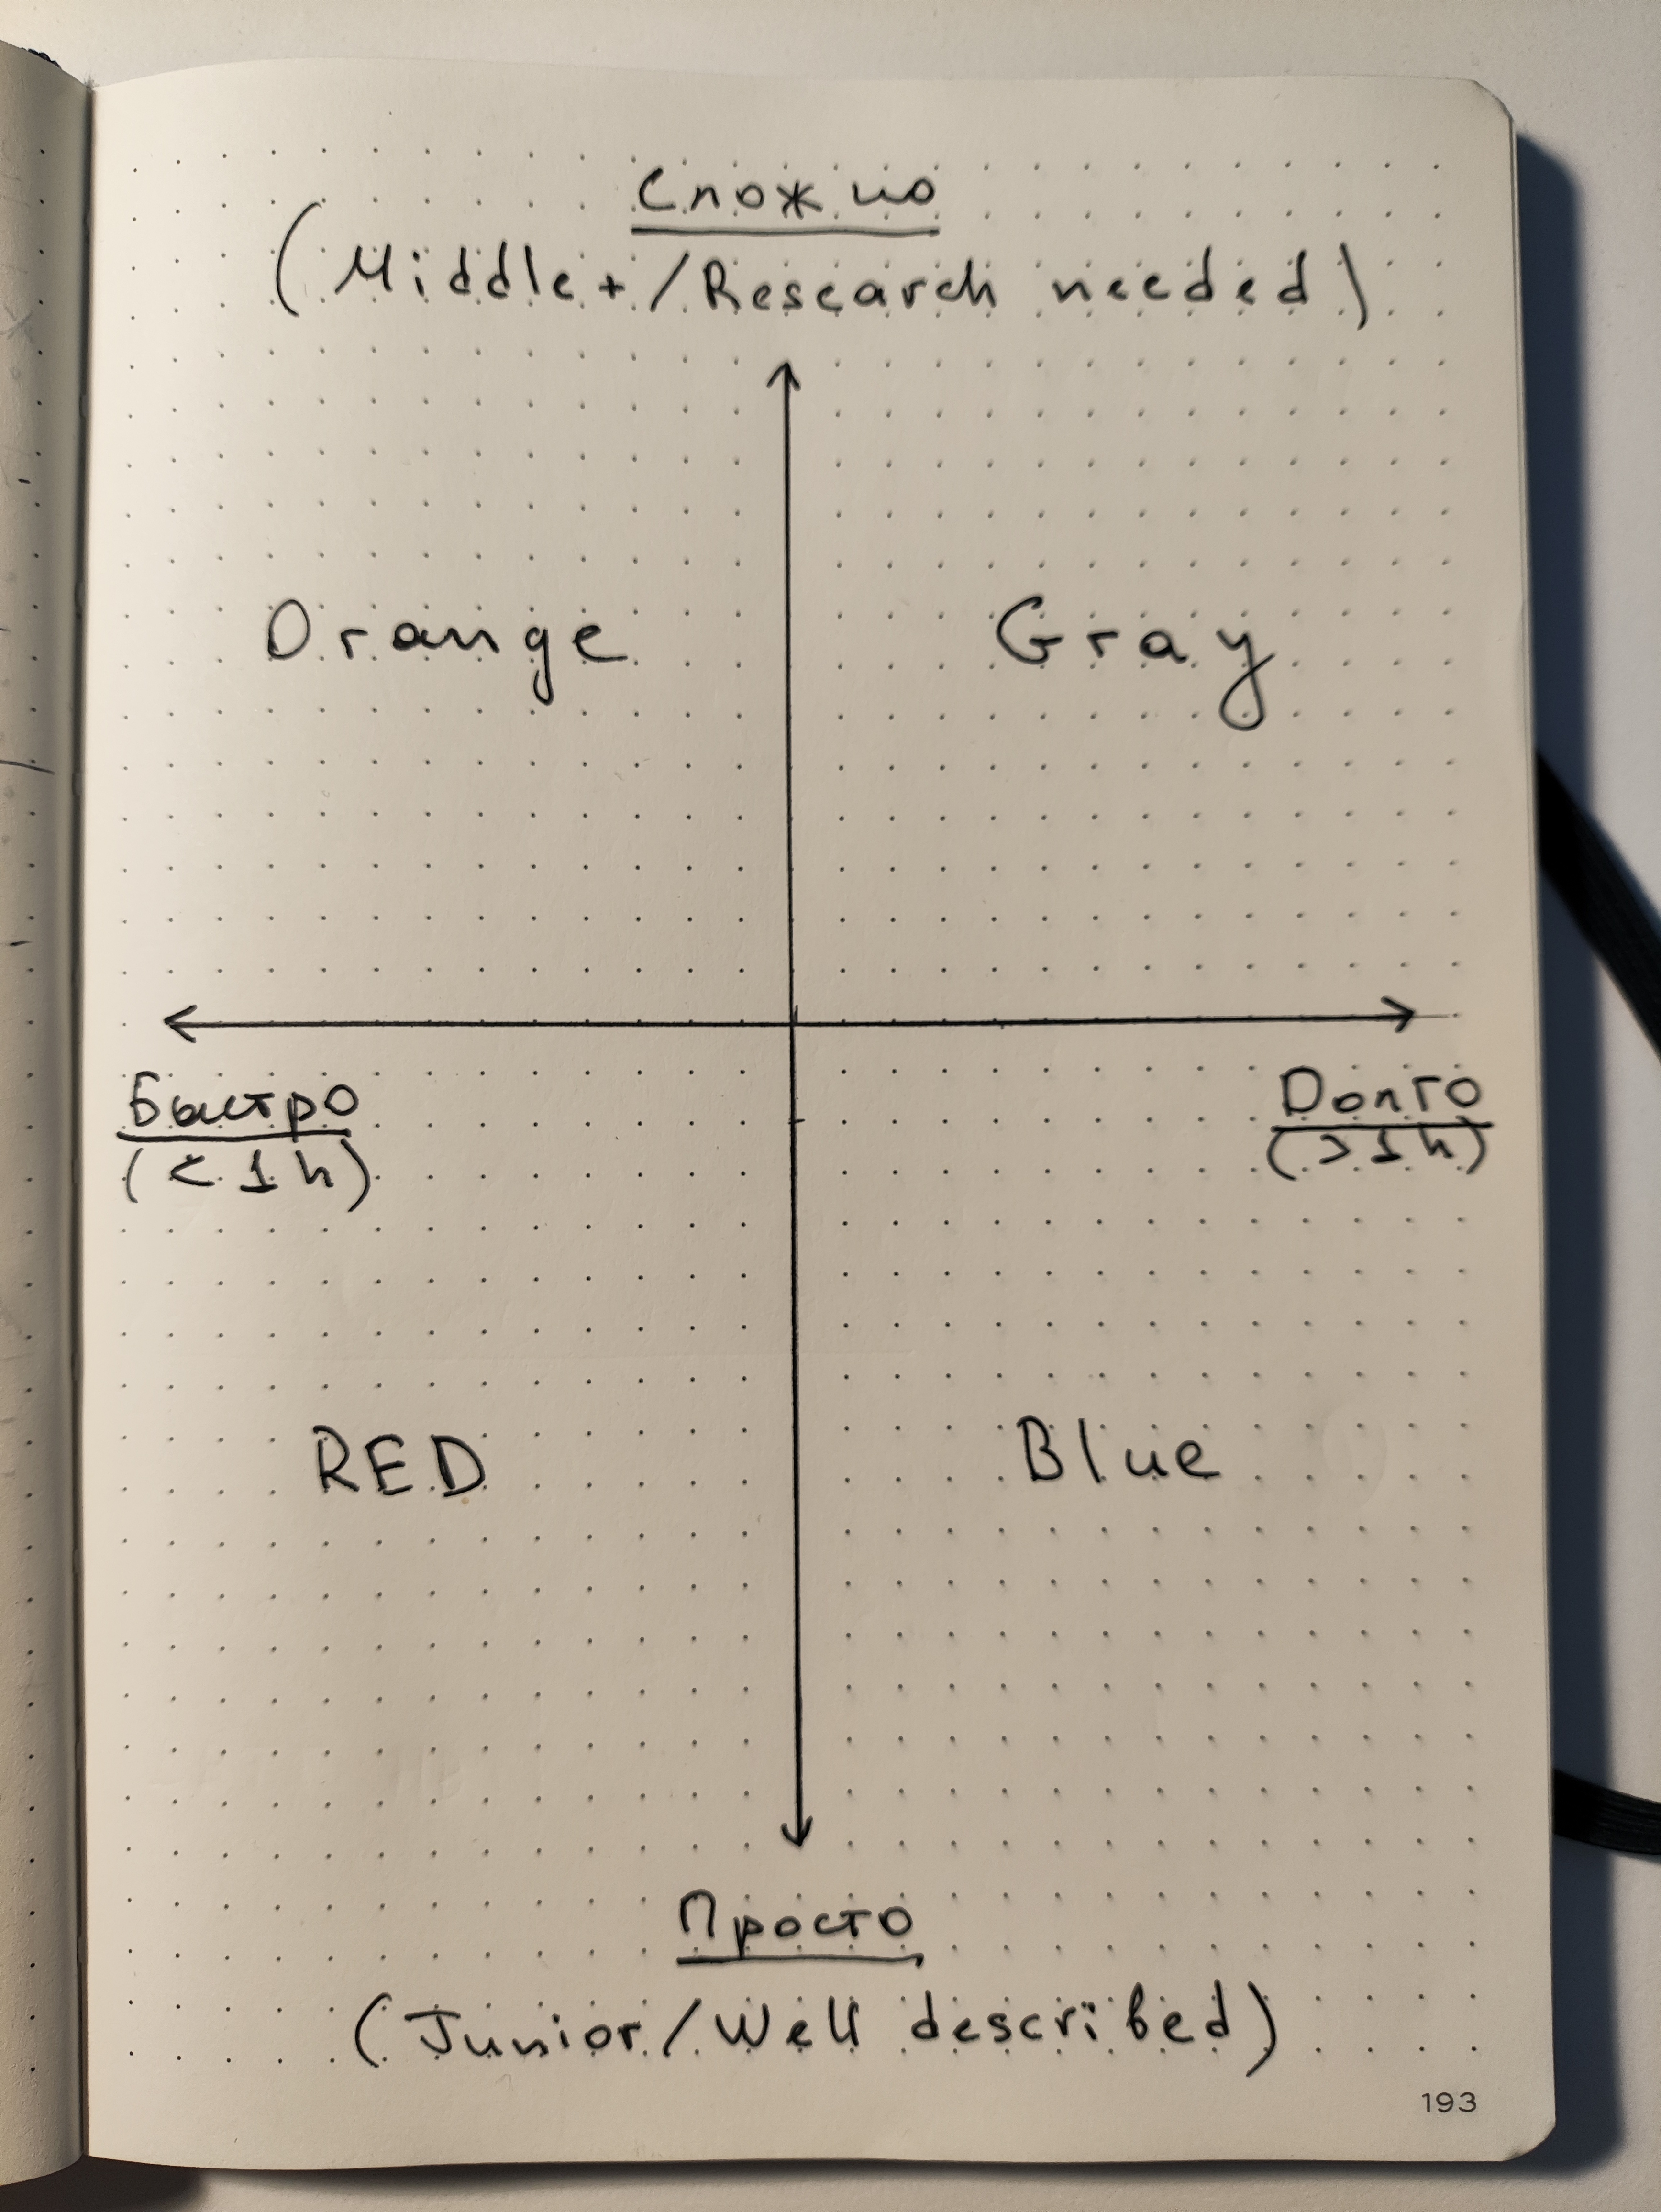 Сложно
(Middle+/Research needed)
Orange
Gray
Быстро
(<1h)
Долго
(>1h)
RED
Blue
Просто
(Junior/Well described)
193